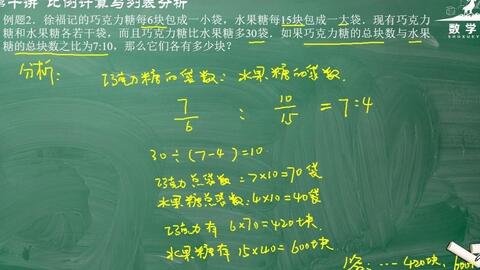 第十讲 比例计算与列表分析
例题2. 徐福记的巧克力糖每6块包成一小袋，水果糖每15块包成一大袋. 现有巧克力
糖和水果糖各若干袋，而且巧克力糖比水果糖多30袋. 如果巧克力糖的总块数与水果
糖的总块数之比为7:10，那么它们各有多少块？
数学
SHUXUEY
分析：
巧克力糖的袋数：水果糖的袋数.
7/6 : 10/15 = 7:4
30÷(7-4)=10
巧克力总袋数：7×10=70袋
水果糖总袋数：4×10=40袋
巧克力有 6×70=420块
水果糖有 15×40=600块
答：… 420块、600